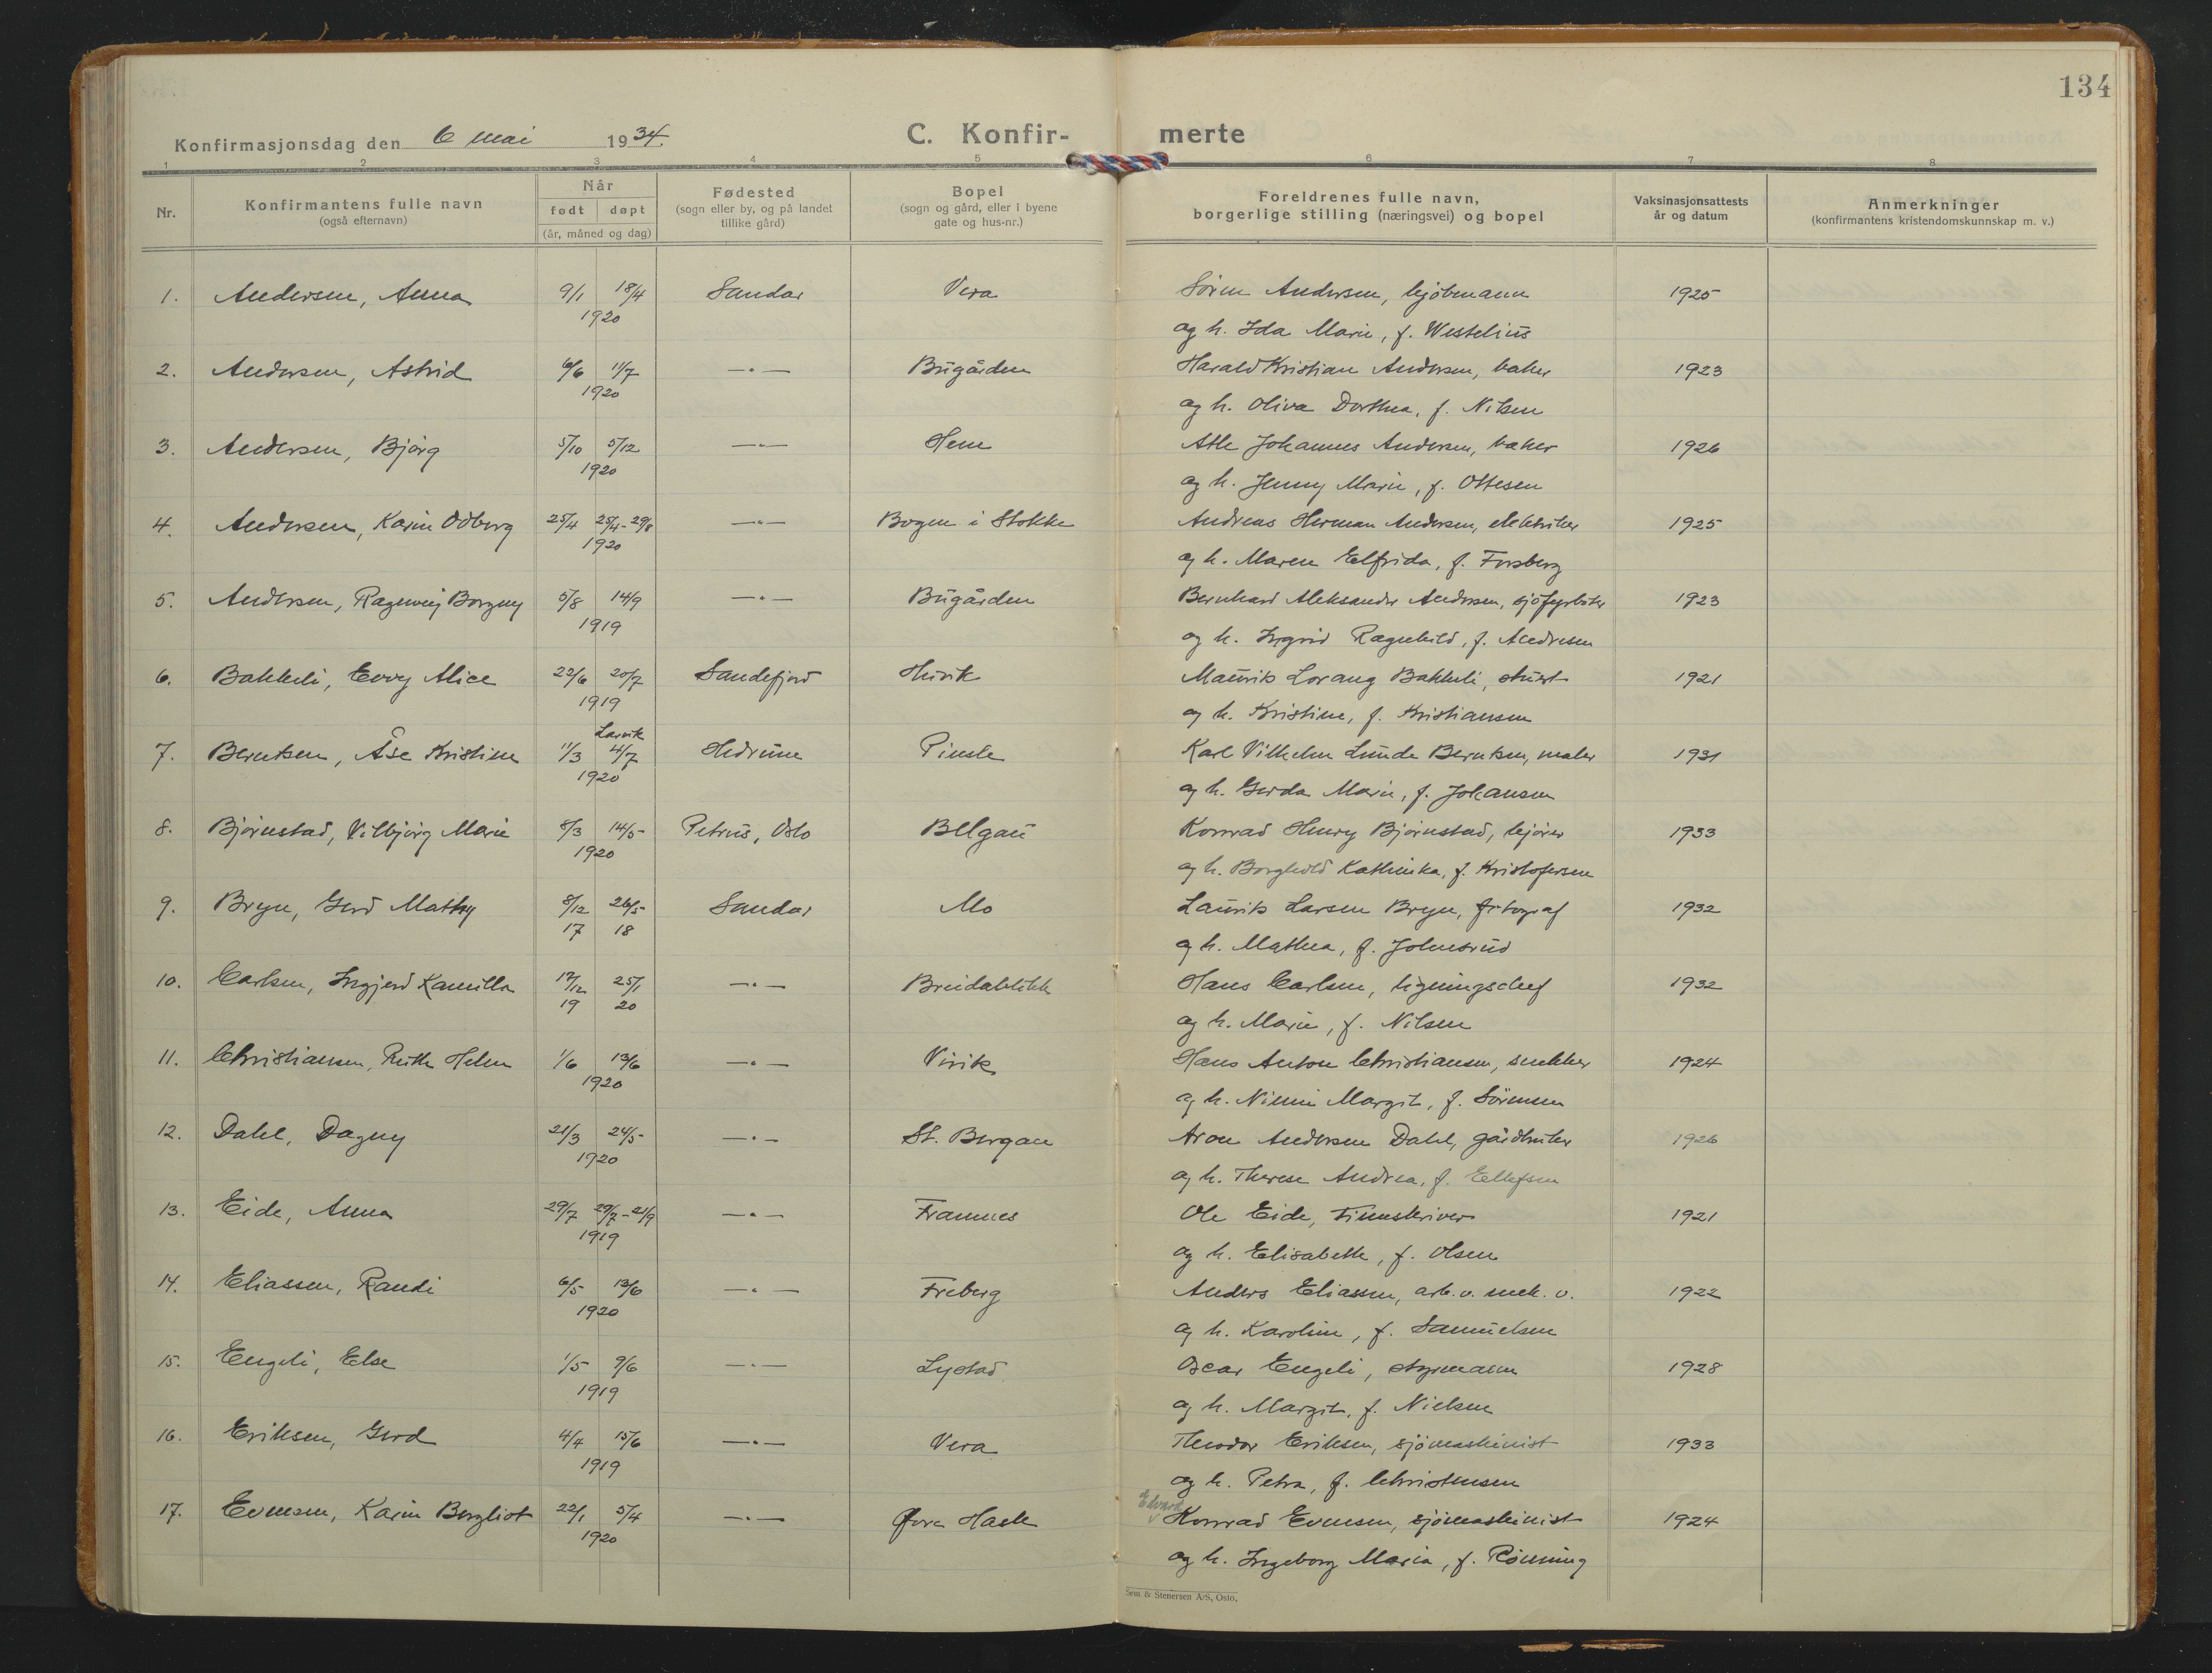 134
Konfirmasjonsdag den 6 mai 1934.
C. Konfir- merte
1 2 3 4 5 6 7 8
Nr.
Konfirmantens fulle navn
(også efternavn)
Når
født døpt
(år, måned og dag)
Fødested
(sogn eller by, og på landet
tillike gård)
Bopel
(sogn og gård, eller i byene
gate og hus-nr.)
Foreldrenes fulle navn,
borgerlige stilling (næringsvei) og bopel
Vaksinasjonsattests
år og datum
Anmerkninger
(konfirmantens kristendomskunnskap m. v.)
1. Andersen, Anna 9/1 18/4 Sandar Vera Sörin Andersen, kjöbmann 1925
1920 og h. Ida Marie, f. Westelius
2. Andersen, Astrid 6/6 11/7 —„— Bugården Harald Kristian Andersen, baker 1923
1920 og h. Oliva Dorthea, f. Nilsen
3. Andersen, Bjørg 5/10 5/12 —„— Hem Atle Johannes Andersen, baker 1926
1920 og h. Jenny Marie, f. Ottesen
4. Andersen, Karin Odborg 25/4 25/4-29/8 —„— Bogen i Stokke Andreas Herman Andersen, elektriker 1925
1920 og h. Maren Elfrida, f. Forsberg
5. Andersen, Ragnveig Borgny 5/8 14/9 —„— Bugården Bernhard Aleksander Andersen, sjöfyrböter 1923
1919 og h. Ingrid Ragnhild, f. Andresen
6. Bakkeli, Evvy Alice 22/6 20/7 Sandefjord Huvik Maurits Lorang Bakkeli, stuert 1921
1919 og h. Kristine, f. Kristiansen
Larvik
7. Berntsen, Åse Kristine 11/3 4/7 Hedrum Pindsle Karl Vilhelm Lunde Berntsen, maler 1931
1920 og h. Gerda Marie, f. Johansen
8. Bjørnstad, Vilbjørg Marie 8/3 14/5 Petrus, Oslo Bellgau Konrad Henry Bjørnstad, kjører 1933
1920 og h. Borghild Kathinka, f. Kristofersen
9. Bryn, Gerd Mathy 8/12 26/5 Sandar Mo Laurits Larsen Bryn, fotograf 1932
17 18 og h. Mathea, f. Johnsrud
10. Carlsen, Ingjerd Kamilla 17/12 25/1 —„— Breidablikk Hans Carlsen, ligningschef 1932
19 20 og h. Marie, f. Nilsen
11. Christiansen, Ruth Helen 1/6 13/6 —„— Virik Hans Anton Christiansen, snekker 1924
1920 og h. Nimmi Margit, f. Sörensen
12. Dahl, Dagny 21/3 24/5 —„— St. Bergan Aron Andersen Dahl, gårdbruker 1926
1920 og h. Therese Andrea, f. Ellefsen
13. Eide, Anna 29/7 29/7-21/9 —„— Framnes Ole Eide, timeskriver 1921
1919 og h. Elisabeth, f. Olsen
14. Eliassen, Randi 6/5 13/6 —„— Freberg Anders Eliassen, arb. v. mek. v. 1922
1920 og h. Karoline, f. Samuelsen
15. Engeli, Else 1/5 9/6 —„— Lystad Oscar Engeli, styrmann 1928
1919 og h. Margit, f. Nielsen
16. Eriksen, Gerd 4/4 15/6 —„— Vera Theodor Eriksen, sjömaskinist 1933
1919 og h. Petra, f. Christensen
Edvard
17. Evensen, Karin Bergliot 22/1 5/4 —„— Øvre Hasle Konrad Evensen, sjömaskinist 1924
1920 og h. Ingeborg Maria, f. Rönning
Sem & Stenersen A/S, Oslo.